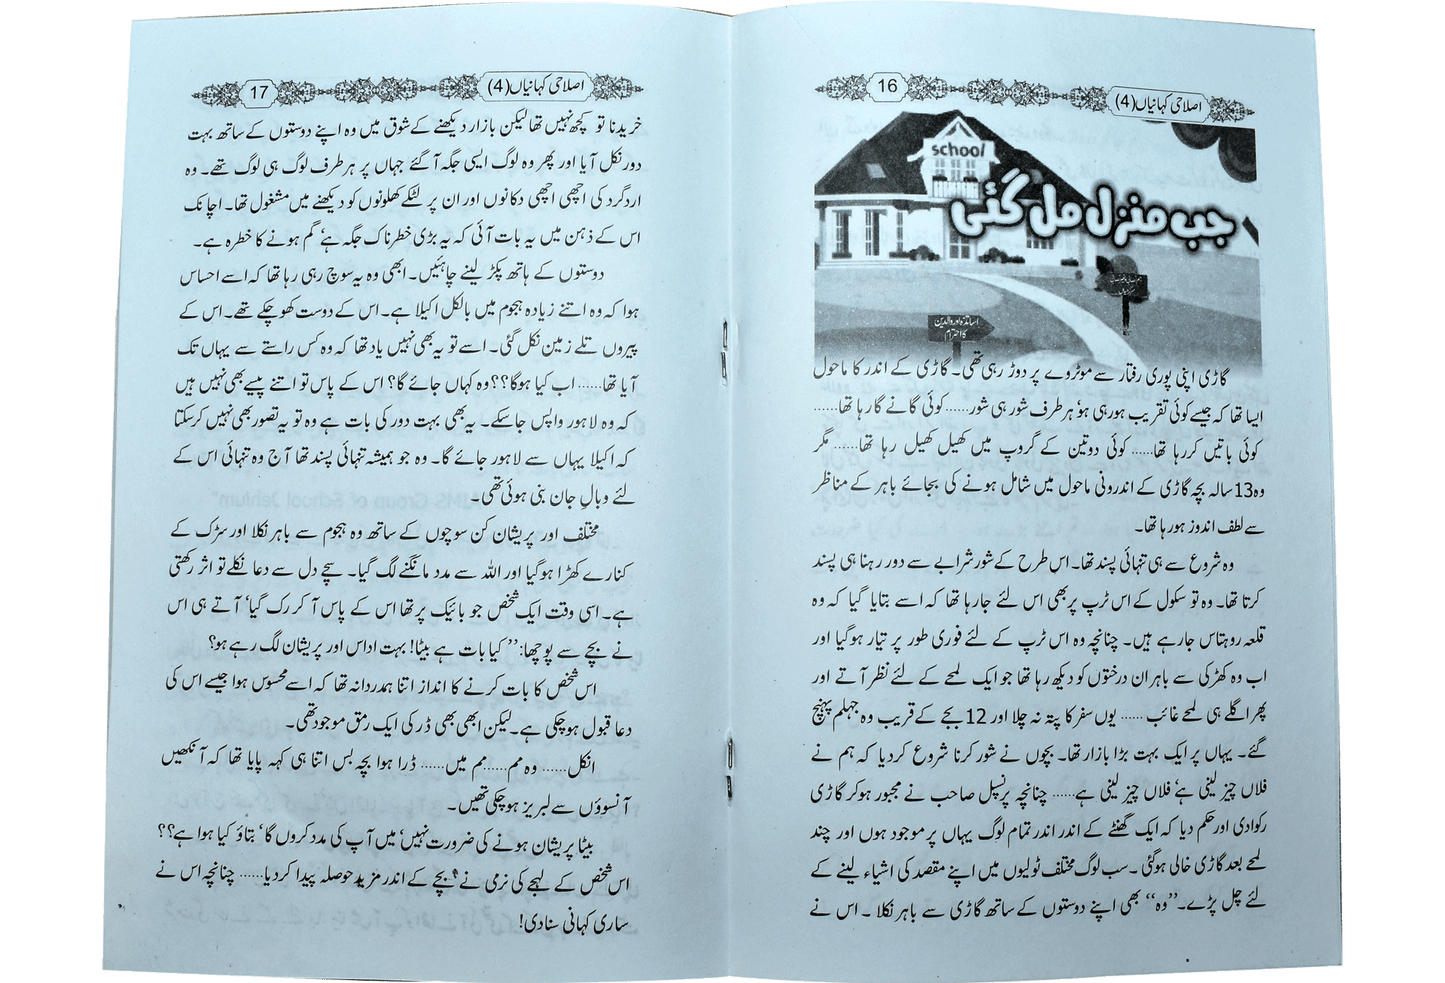 16
اصلاحی کہانیاں (4)
school
جب منزل مل گئی
اساتذہ اور والدین
کا احترام
گاڑی اپنی پوری رفتار سے موٹروے پر دوڑ رہی تھی۔ گاڑی کے اندر کا ماحول
ایسا تھا کہ جیسے کوئی تقریب ہو رہی ہو‘ ہر طرف شور ہی شور...... کوئی گانے گا رہا تھا......
کوئی باتیں کر رہا تھا...... کوئی دو تین کے گروپ میں کھیل کھیل رہا تھا...... مگر
وہ 13 سالہ بچہ گاڑی کے اندرونی ماحول میں شامل ہونے کی بجائے باہر کے مناظر
سے لطف اندوز ہو رہا تھا۔
وہ شروع سے ہی تنہائی پسند تھا۔ اس طرح کے شور شرابے سے دور رہنا ہی پسند
کرتا تھا۔ وہ تو سکول کے اس ٹرپ پر بھی اس لئے جا رہا تھا کہ اسے بتایا گیا کہ وہ
قلعہ روہتاس جا رہے ہیں۔ چنانچہ وہ اس ٹرپ کے لئے فوری طور پر تیار ہو گیا اور
اب وہ کھڑکی سے باہر ان درختوں کو دیکھ رہا تھا جو ایک لمحے کے لئے نظر آتے اور
پھر اگلے ہی لمحے غائب ...... یوں سفر کا پتہ نہ چلا اور 12 بجے کے قریب وہ جہلم پہنچ
گئے۔ یہاں پر ایک بہت بڑا بازار تھا۔ بچوں نے شور کرنا شروع کر دیا کہ ہم نے
فلاں چیز لینی ہے‘ فلاں چیز لینی ہے...... چنانچہ پرنسپل صاحب نے مجبور ہو کر گاڑی
رکوا دی اور حکم دیا کہ ایک گھنٹے کے اندر اندر تمام لوگ یہاں پر موجود ہوں اور چند
لمحے بعد گاڑی خالی ہو گئی۔ سب لوگ مختلف ٹولیوں میں اپنے مقصد کی اشیاء لینے کے
لئے چل پڑے۔ ’’وہ‘‘ بھی اپنے دوستوں کے ساتھ گاڑی سے باہر نکلا ۔ اس نے
17
اصلاحی کہانیاں (4)
خریدنا تو کچھ نہیں تھا لیکن بازار دیکھنے کے شوق میں وہ اپنے دوستوں کے ساتھ بہت
دور نکل آیا اور پھر وہ لوگ ایسی جگہ آ گئے جہاں پر ہر طرف لوگ ہی لوگ تھے۔ وہ
ارد گرد کی اچھی اچھی دکانوں اور ان پر لٹکے کھلونوں کو دیکھنے میں مشغول تھا۔ اچانک
اس کے ذہن میں یہ بات آئی کہ یہ بڑی خطرناک جگہ ہے‘ گم ہونے کا خطرہ ہے۔
دوستوں کے ہاتھ پکڑ لینے چاہئیں۔ ابھی وہ یہ سوچ رہی رہا تھا کہ اسے احساس
ہوا کہ وہ اتنے زیادہ ہجوم میں بالکل اکیلا ہے۔ اس کے دوست کھو چکے تھے۔ اس کے
پیروں تلے زمین نکل گئی۔ اسے تو یہ بھی نہیں یاد تھا کہ وہ کس راستے سے یہاں تک
آیا تھا...... اب کیا ہوگا؟؟ وہ کہاں جائے گا؟ اس کے پاس تو اتنے پیسے بھی نہیں ہیں
کہ وہ لاہور واپس جا سکے۔ یہ بھی بہت دور کی بات ہے وہ تو یہ تصور بھی نہیں کرسکتا
کہ اکیلا یہاں سے لاہور جائے گا۔ وہ جو ہمیشہ تنہائی پسند تھا آج وہ تنہائی اس کے
لئے وبالِ جان بنی ہوئی تھی۔
مختلف اور پریشان کن سوچوں کے ساتھ وہ ہجوم سے باہر نکلا اور سڑک کے
کنارے کھڑا ہو گیا اور اللہ سے مدد مانگنے لگ گیا۔ سچے دل سے دعا نکلے تو اثر رکھتی
ہے۔ اسی وقت ایک شخص جو بائیک پر تھا اس کے پاس آ کر رک گیا‘ آتے ہی اس
نے بچے سے پوچھا: ’’کیا بات ہے بیٹا! بہت اداس اور پریشان لگ رہے ہو؟
اس شخص کا بات کرنے کا انداز اتنا ہمدردانہ تھا کہ اسے محسوس ہوا جیسے اس کی
دعا قبول ہو چکی ہے۔ لیکن ابھی بھی ڈر کی ایک رمق موجود تھی۔
انکل...... وہ مم.....مم میں...... ڈرا ہوا بچہ بس اتنا ہی کہہ پایا تھا کہ آنکھیں
آنسوؤں سے لبریز ہو چکی تھیں۔
بیٹا پریشان ہونے کی ضرورت نہیں‘ میں آپ کی مدد کروں گا‘ بتاؤ کیا ہوا ہے؟؟
اس شخص کے لہجے کی نرمی نے بچے کے اندر مزید حوصلہ پیدا کر دیا...... چنانچہ اس نے
ساری کہانی سنا دی!